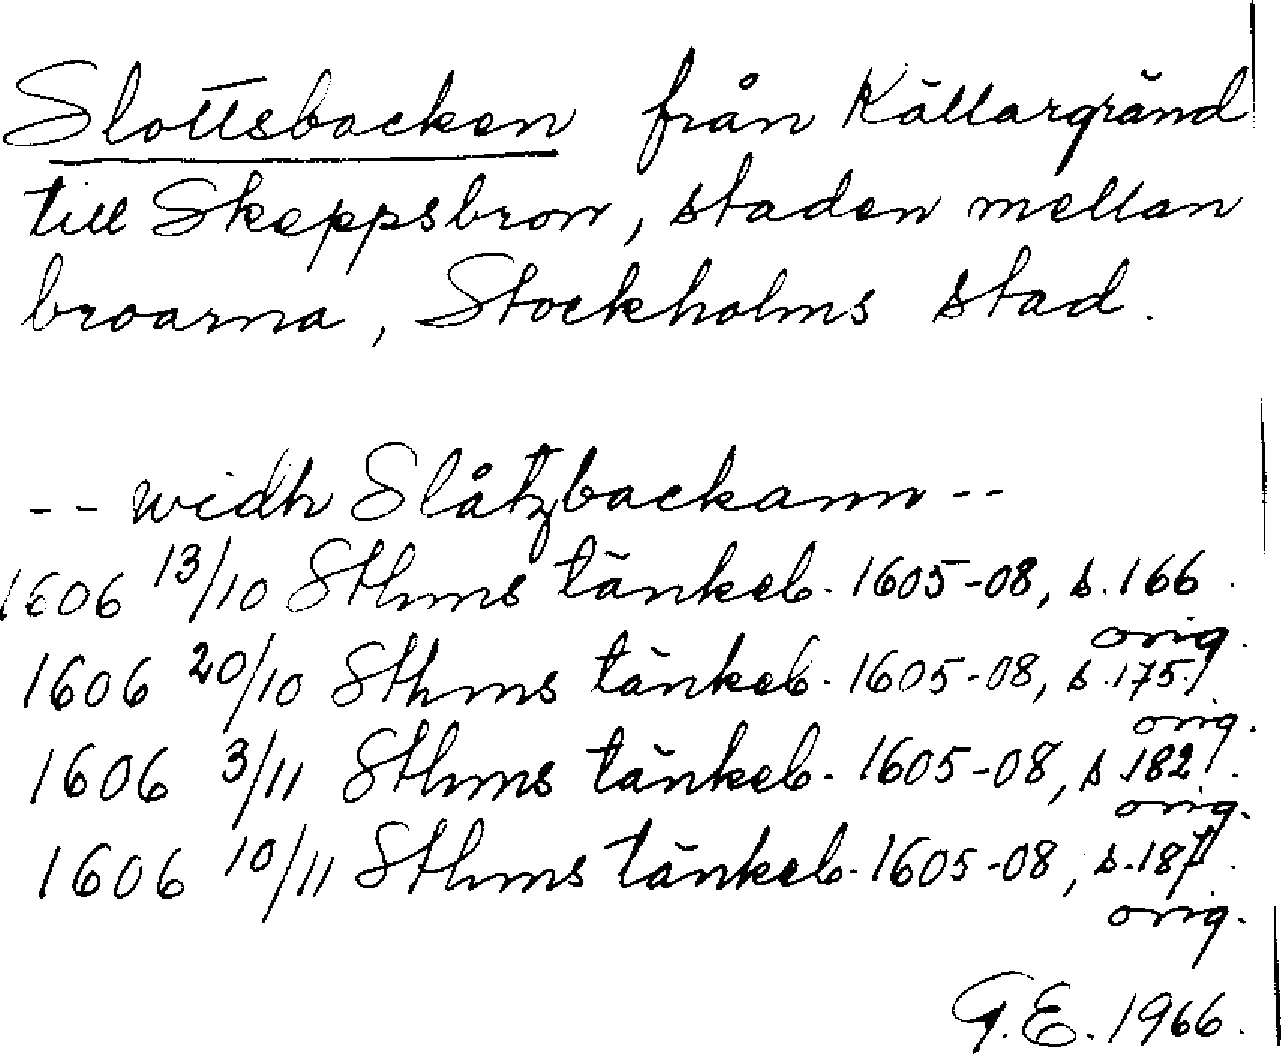 Slottsbacken från Källargränd
till Skeppsbron, staden mellan
broarna, Stockholms stad.
-- widh Slåtzbackann --
1606 13/10 Sthms tänkeb. 1605-08, s. 166.
orig.
1606 20/10 Sthms tänkeb. 1605-08, s. 175.
orig.
1606 3/11 Sthms tänkeb. 1605-08, s. 182.
orig.
1606 10/11 Sthms tänkeb. 1605-08, s. 187.
orig.
G.E. 1966.